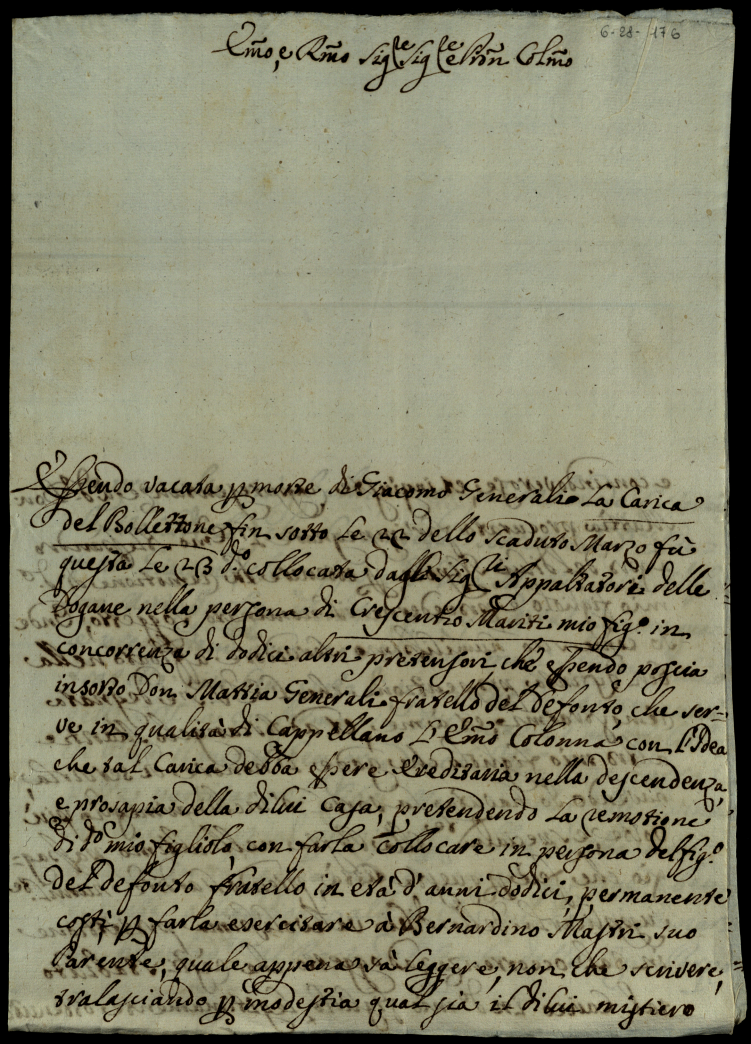 6-28-176
Em̃o, e Rm̃o Sig.re Sig.re e Pron Colm̃o
Essendo vacata p morte di Giacomo Generali la Carica
del Bollettone fin sotto le 22 dello scaduto Marzo fù
questa le 23 d.o collocata dagli Sig.ri Appaltatori delle
Dogane nella persona di Crescentio Mariti mio fig.o in
concorrenza di dodici altri pretensori, che essendo poscia
insorto Don Mattia Generali fratello del defonto, che ser=
ve in qualità di Cappellano l'Em̃o Colonna, con l'Idea
che tal Carica debba essere ereditaria nella descendenza,
e prosapia della dilui Casa, pretendendo la remotione
di d.o mio figliolo, con farla collocare in persona del fig.o
del defonto fratello in età d'anni dodici, permanente
costì, p farla esercitare à Bernardino Mastri suo
Parente, quale appena sà leggere, non che scrivere,
tralasciando p modestia qual sia il dilui mistiero